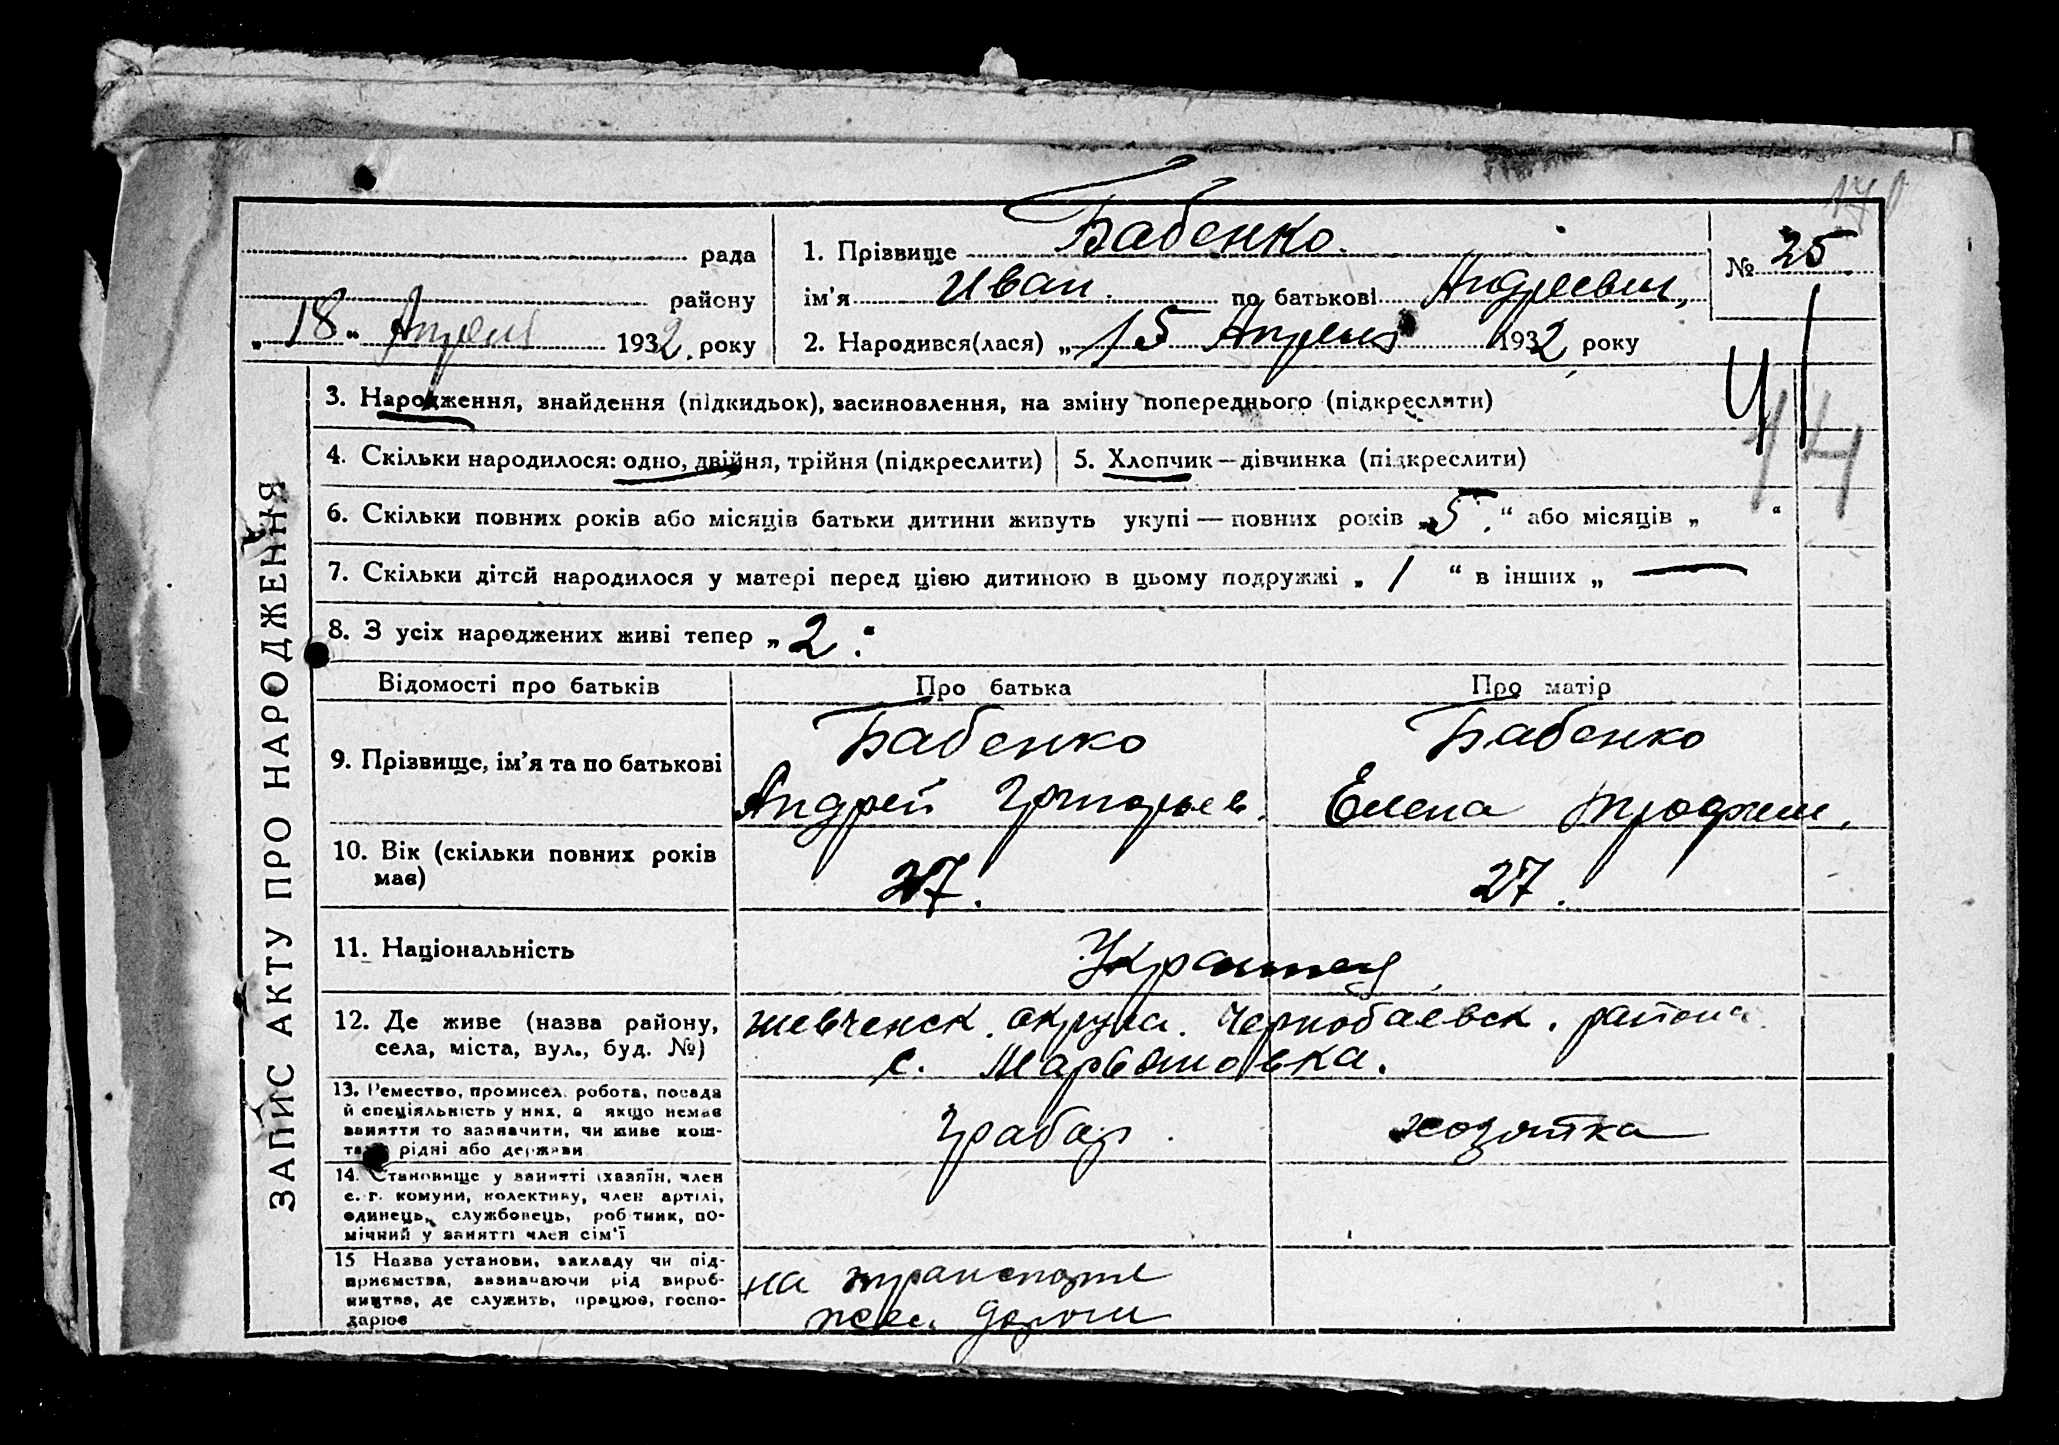 170
рада
1. Прізвище Бабенко.
№ 25
району
ім'я Иван. по батькові Андреевич,
„18“ Апреля 1932. року
2. Народився(лася) „15 Апреля 1932 року
3. Народження, знайдення (підкидьок), засиновлення, на зміну попереднього (підкреслити)
4. Скільки народилося: одно, двійня, трійня (підкреслити)
5. Хлопчик—дівчинка (підкреслити)
14
6. Скільки повних років або місяців батьки дитини живуть укупі — повних років „5.“ або місяців „ “
7. Скільки дітей народилося у матері перед цією дитиною в цьому подружжі „ 1 “ в інших „ —
8. З усіх народжених живі тепер „2.“
ЗАПИС АКТУ ПРО НАРОДЖЕННЯ
Відомості про батьків
Про батька
Про матір
9. Прізвище, ім'я та по батькові
Бабенко
Андрей Григорьев.
Бабенко
Елена Трофим.
10. Вік (скільки повних років
має)
27.
27.
11. Національність
Украинец
12. Де живе (назва району,
села, міста, вул., буд. №)
Шевченск. округа. Чернобаевск. района
с. Марьяновка.
13. Ремество, промисел, робота, посада
й спеціяльність у них, а якщо немає
заняття то зазначити, чи живе кош-
том рідні або держави
Грабар.
хозяйка
14. Становище у занятті (хазяїн, член
с.-г. комуни, колективу, член артілі,
одинець, службовець, робітник, по-
мічний у занятті член сім'ї
15 Назва установи, закладу чи під-
приємства, зазначаючи рід вироб-
ництва, де служить, працює, госпо-
дарює
на транспорте
жел. дороги